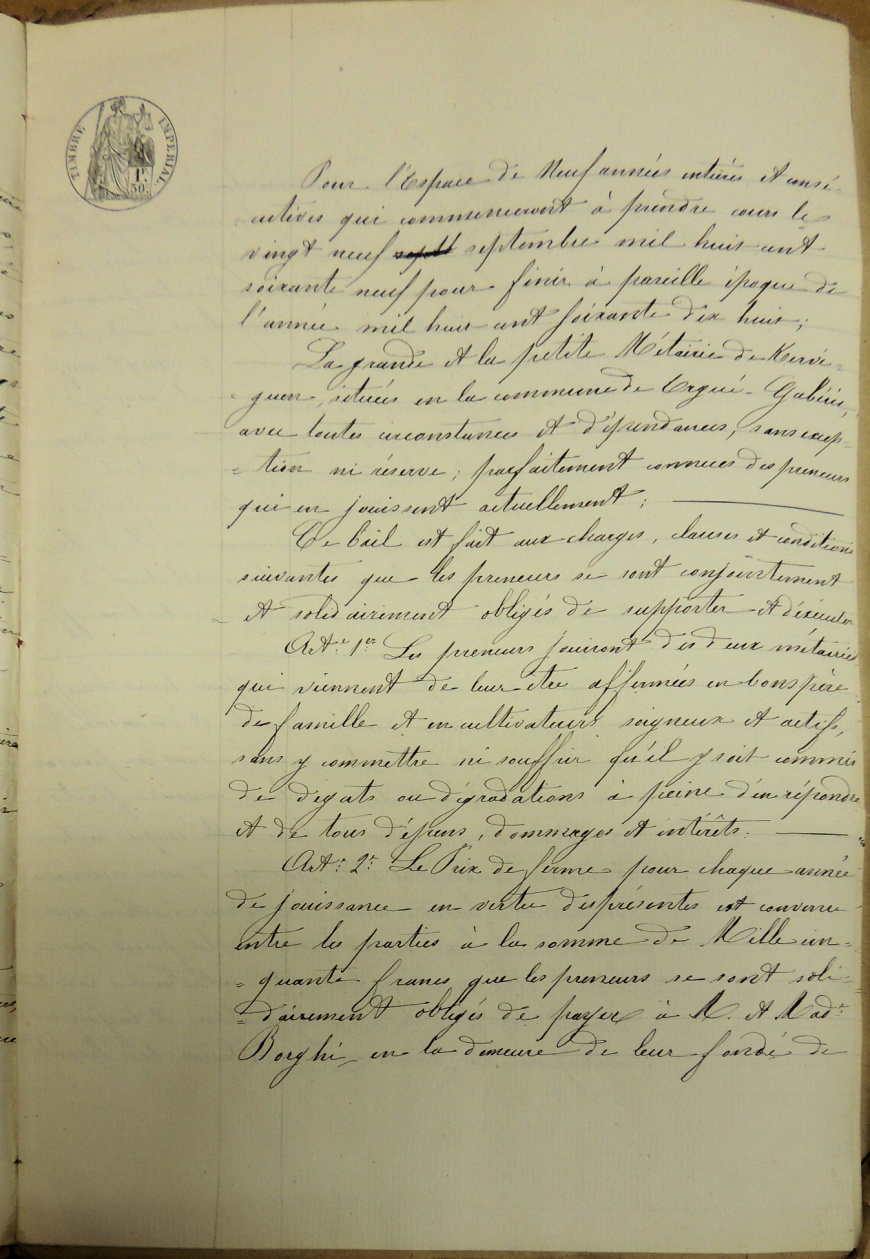 TIMBRE IMPERIAL.
1F
50c
Pour l'Espace de Neuf années entières et consé-
cutives qui commenceront à prendre cours le
vingt neuf sept septembre mil huit cent
soixante neuf pour finir à pareille époque de
l'année mil huit cent soixante dix huit;
La grande et la petite Métairie de Kervé-
-guen, situées en la commune de Ergué-Gabéric,
avec toutes circonstances et dépendances, sans excep-
=tion ni réserve; parfaitement connues des preneurs
qui en jouissent actuellement;
Ce bail est fait aux charges, clauses et conditions
suivantes que les preneurs se sont conjointement
et solidairement obligés de supporter et d'exécuter
Art.e 1er Les preneurs jouiront des deux métairies
qui viennent de leur être affermées en bons père
de famille et en cultivateurs soigneux et actifs,
sans y commettre ni souffrir qu'il y soit commis
de dégats ou dégradations à peine d'en répondre
et de tous dépens, dommages et intérêts.
Art.e 2e Le Prix de ferme pour chaque année
de jouissance en vertu des présentes est convenu
entre les parties à la somme de Mille cin-
=quante francs que les preneurs se sont soli-
=dairement obligés de payer à M. et Made
Borghi, en la demeure de leur fondé de